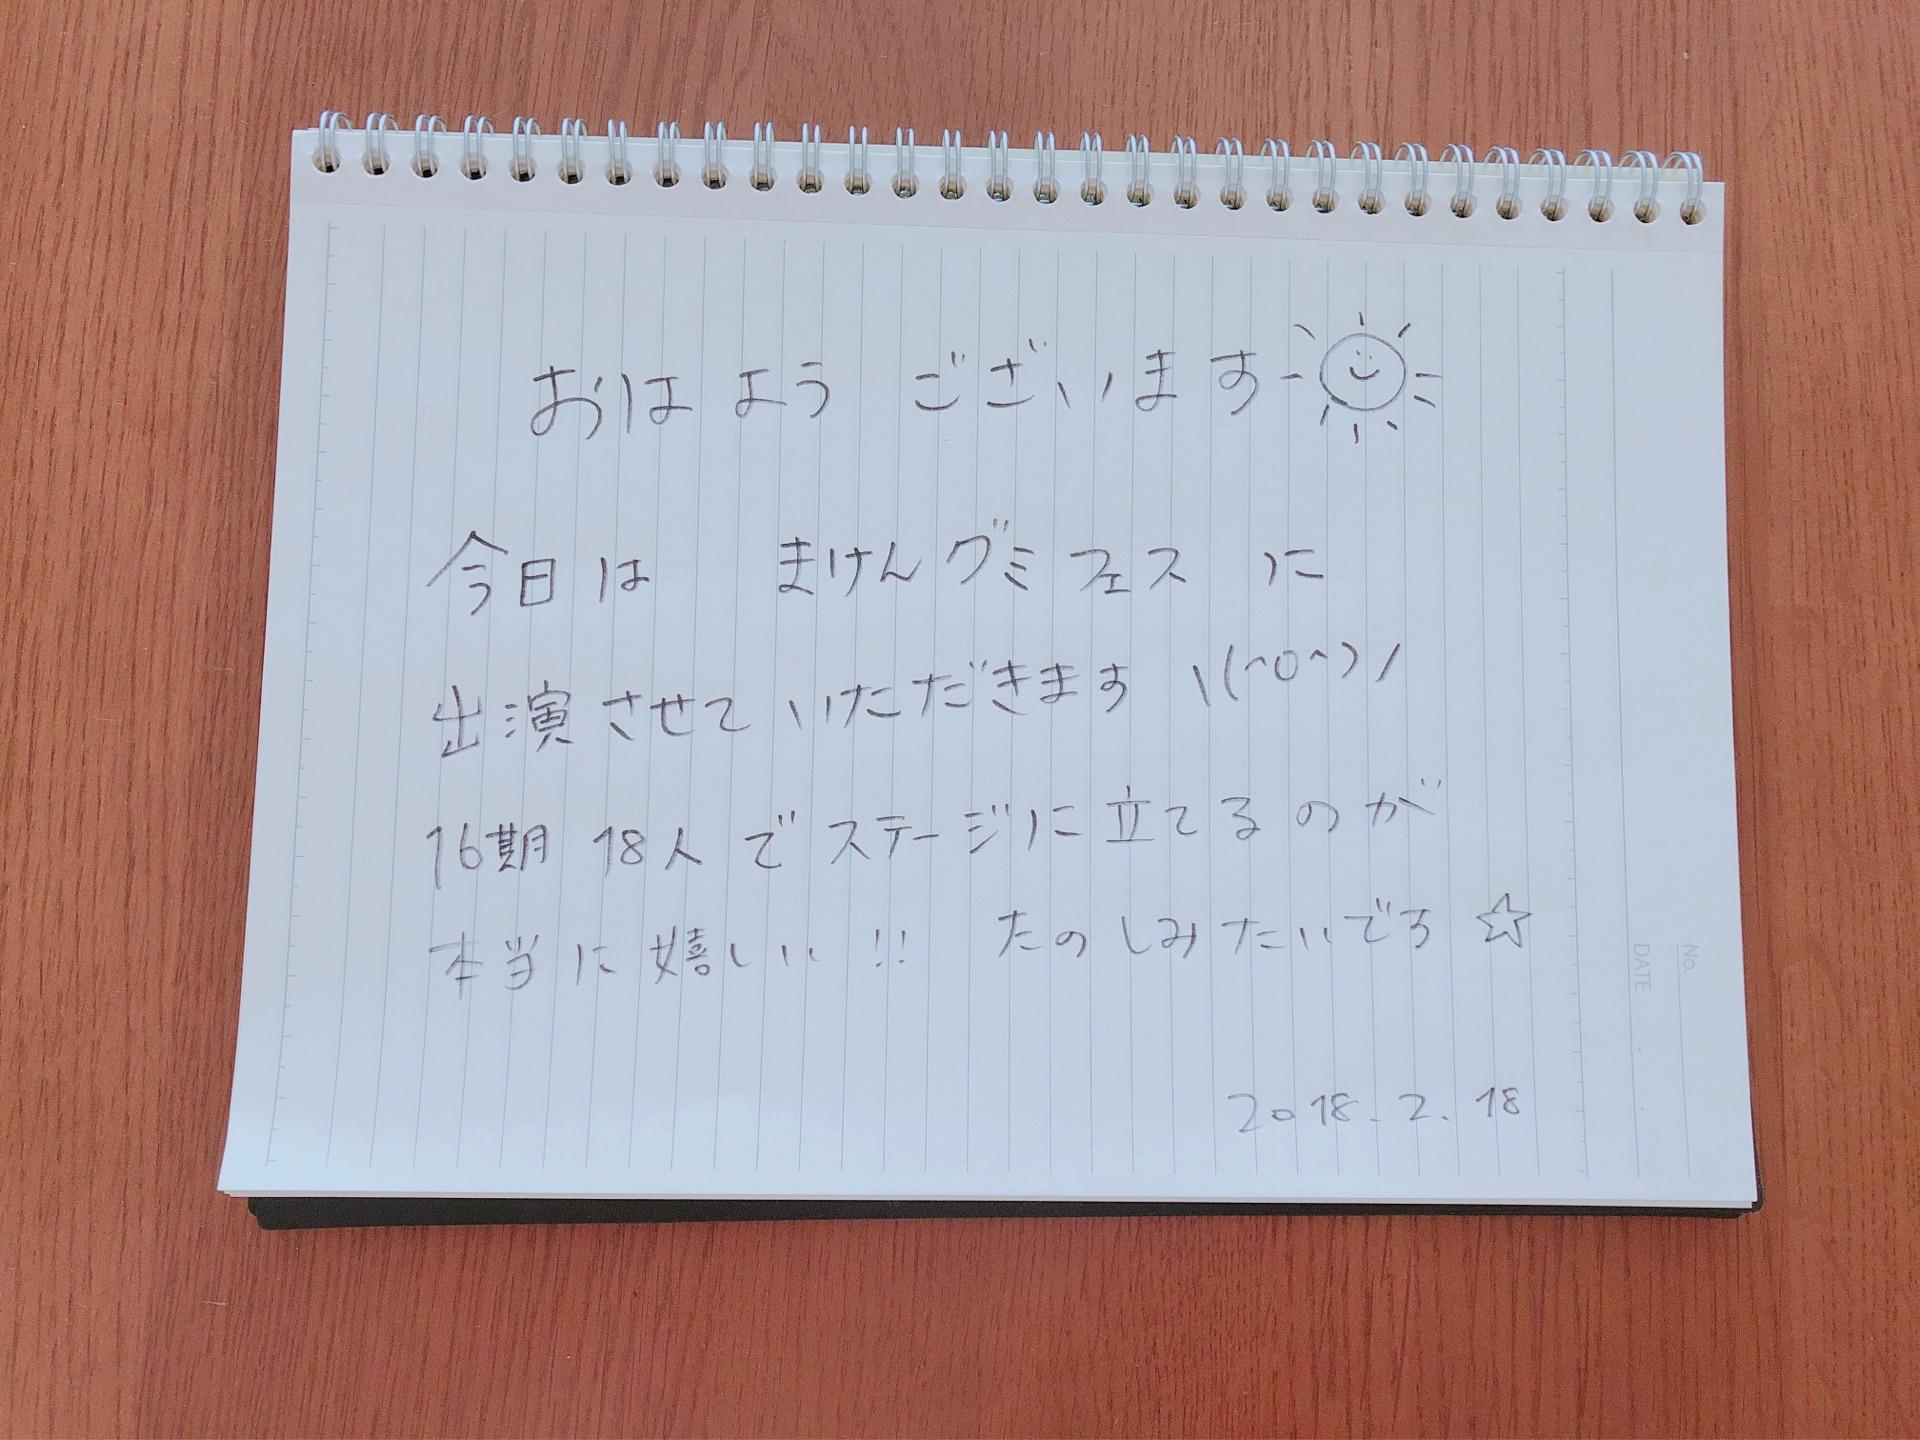 おはよう ございます
今日は まけんグミフェス に
出演させていただきます \(^o^)/
16期 18人でステージに立てるのが
本当に嬉しい!! たのしみたいです☆
2018.2.18
No.
DATE . .